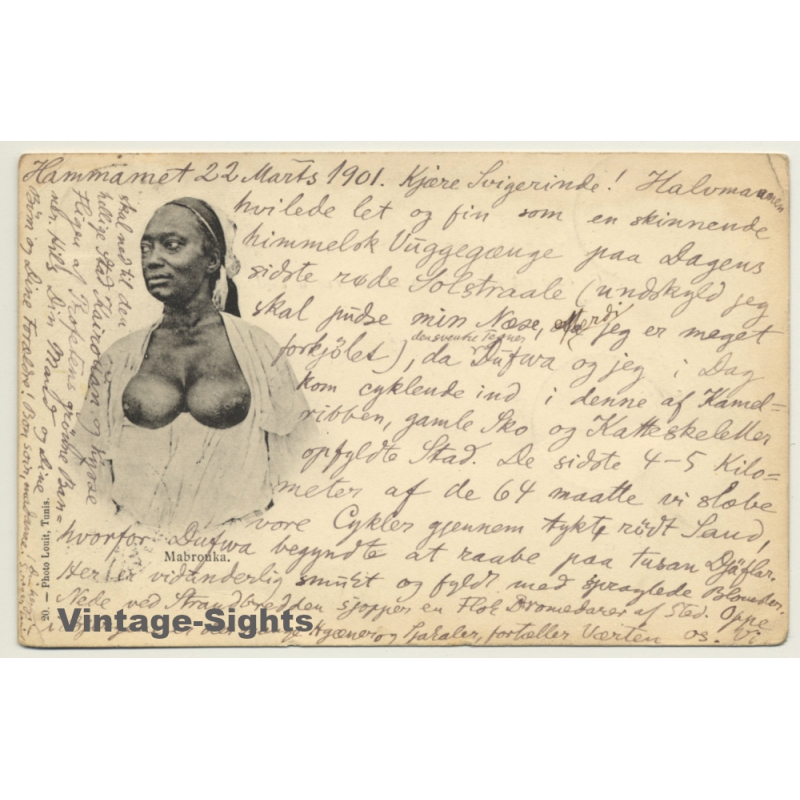 Hammamet 22 Marts 1901. Kjære Svigerinde! Halvmaanen
hvilede let og fin som en skinnende
himmelsk Vuggegænge paa Dagens
sidste røde Solstraale (undskyld jeg
skal pudse min Næse, jeg er meget
den svenske Tegner
forkjølet), da Dufwa og jeg i Dag
kom cyklende ind i denne af Kamel-
ribben, gamle Sko og Katteskeletter
opfyldte Stad. De sidste 4-5 Kilo-
meter af de 64 maatte vi slæbe
vore Cykler gjennem tykt rödt Sand,
hvorfor Dufwa begyndte at raabe paa tusan Djäflar.
Her er vidunderlig smukt og fyldt med spraglede Blomster.
Nede ved Strandbredden sjopper en Flok Dromedarer af Sted. Oppe
i Hyæner og Sjakaler, fortæller Værten os. Vi
skal ned til den
hellige Stad Kairouan og kysse
Fligen af Profetens grönne Ban=
ner. Hils Din Mand og Dine
Börn og Dine Forældre! Bon soir, madame!
Mabrouka.
20. — Photo Louit, Tunis.
Vintage-Sights